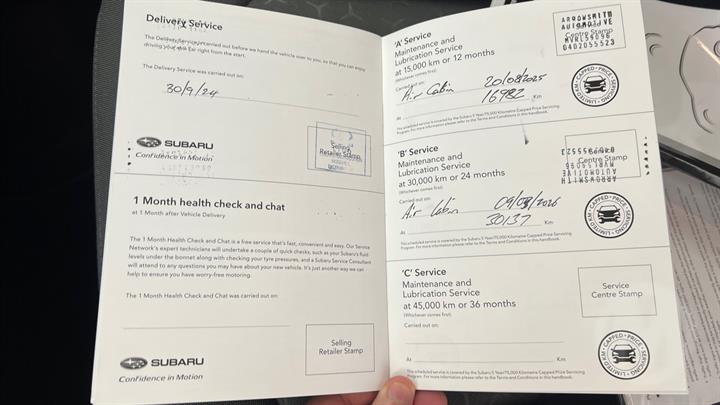 Delivery Service
The Delivery Service is carried out before we hand the vehicle over to you, so that you can enjoy
driving your new car right from the start.
The Delivery Service was carried out on:
30/9/24
SUBARU
Confidence in Motion
Selling
Retailer Stamp
1 Month health check and chat
at 1 Month after Vehicle Delivery
The 1 Month Health Check and Chat is a free service that's fast, convenient and easy. Our Service
Network's expert technicians will undertake a couple of quick checks, such as your Subaru's fluid
levels under the bonnet along with checking your tyre pressures, and a Subaru Service Consultant
will attend to any questions you may have about your new vehicle. It's just another way we can
help to ensure you have worry-free motoring.
The 1 Month Health Check and Chat was carried out on:
Selling
Retailer Stamp
SUBARU
Confidence in Motion
'A' Service
Maintenance and
Lubrication Service
at 15,000 km or 12 months
(Whichever comes first)
Carried out on:
Air Cabin 20/08/2025
At 16982 Km
This scheduled service is covered by the Subaru 5 Year/75,000 Kilometre Capped Price Servicing
Program. For more information please refer to the Terms and Conditions in this handbook.
ARROWSMITH
AUTOMOTIVE
MVRL59096
0402055523
Centre Stamp
CAPPED • PRICE • SERVICING • LIMITED KM •
'B' Service
Maintenance and
Lubrication Service
at 30,000 km or 24 months
(Whichever comes first)
Carried out on:
Air Cabin
30137 Km
This scheduled service is covered by the Subaru 5 Year/75,000 Kilometre Capped Price Servicing
Program. For more information please refer to the Terms and Conditions in this handbook.
ARROWSMITH
AUTOMOTIVE
MVRL59096
0402055523
Service
Centre Stamp
CAPPED • PRICE • SERVICING • LIMITED KM •
'C' Service
Maintenance and
Lubrication Service
at 45,000 km or 36 months
(Whichever comes first)
Carried out on:
At Km
This scheduled service is covered by the Subaru 5 Year/75,000 Kilometre Capped Price Servicing
Program. For more information please refer to the Terms and Conditions in this handbook.
Service
Centre Stamp
CAPPED • PRICE • SERVICING • LIMITED KM •